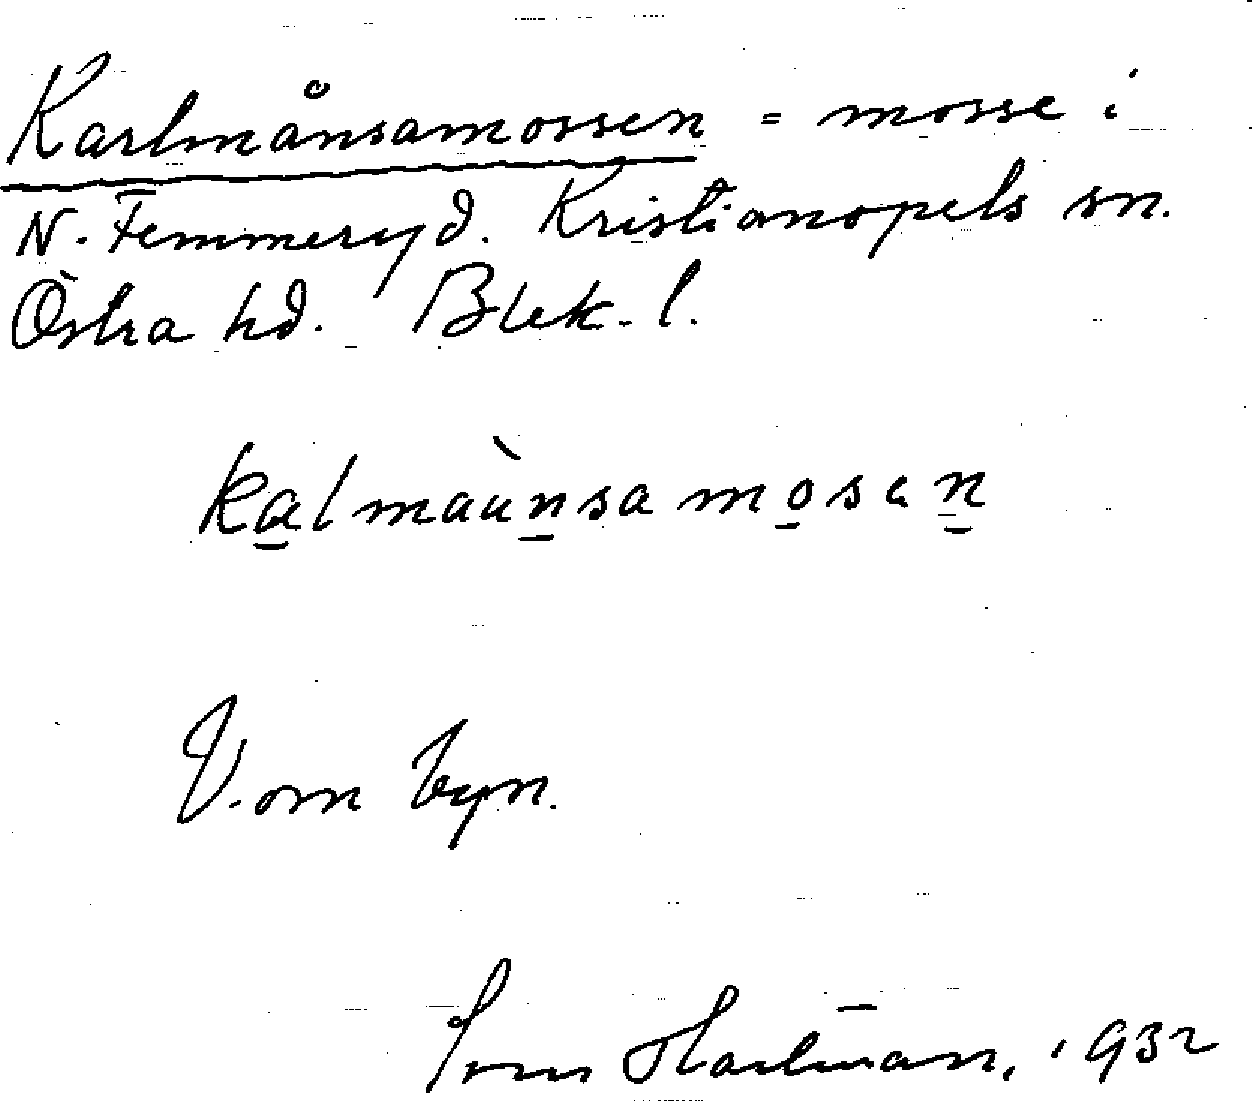 Karlmånsamossen = mosse i
N. Femmeryd. Kristianopels sn.
Östra hd. Blek. l.
kalmaùnsamosen
V. om byn.
Hartman, 1932